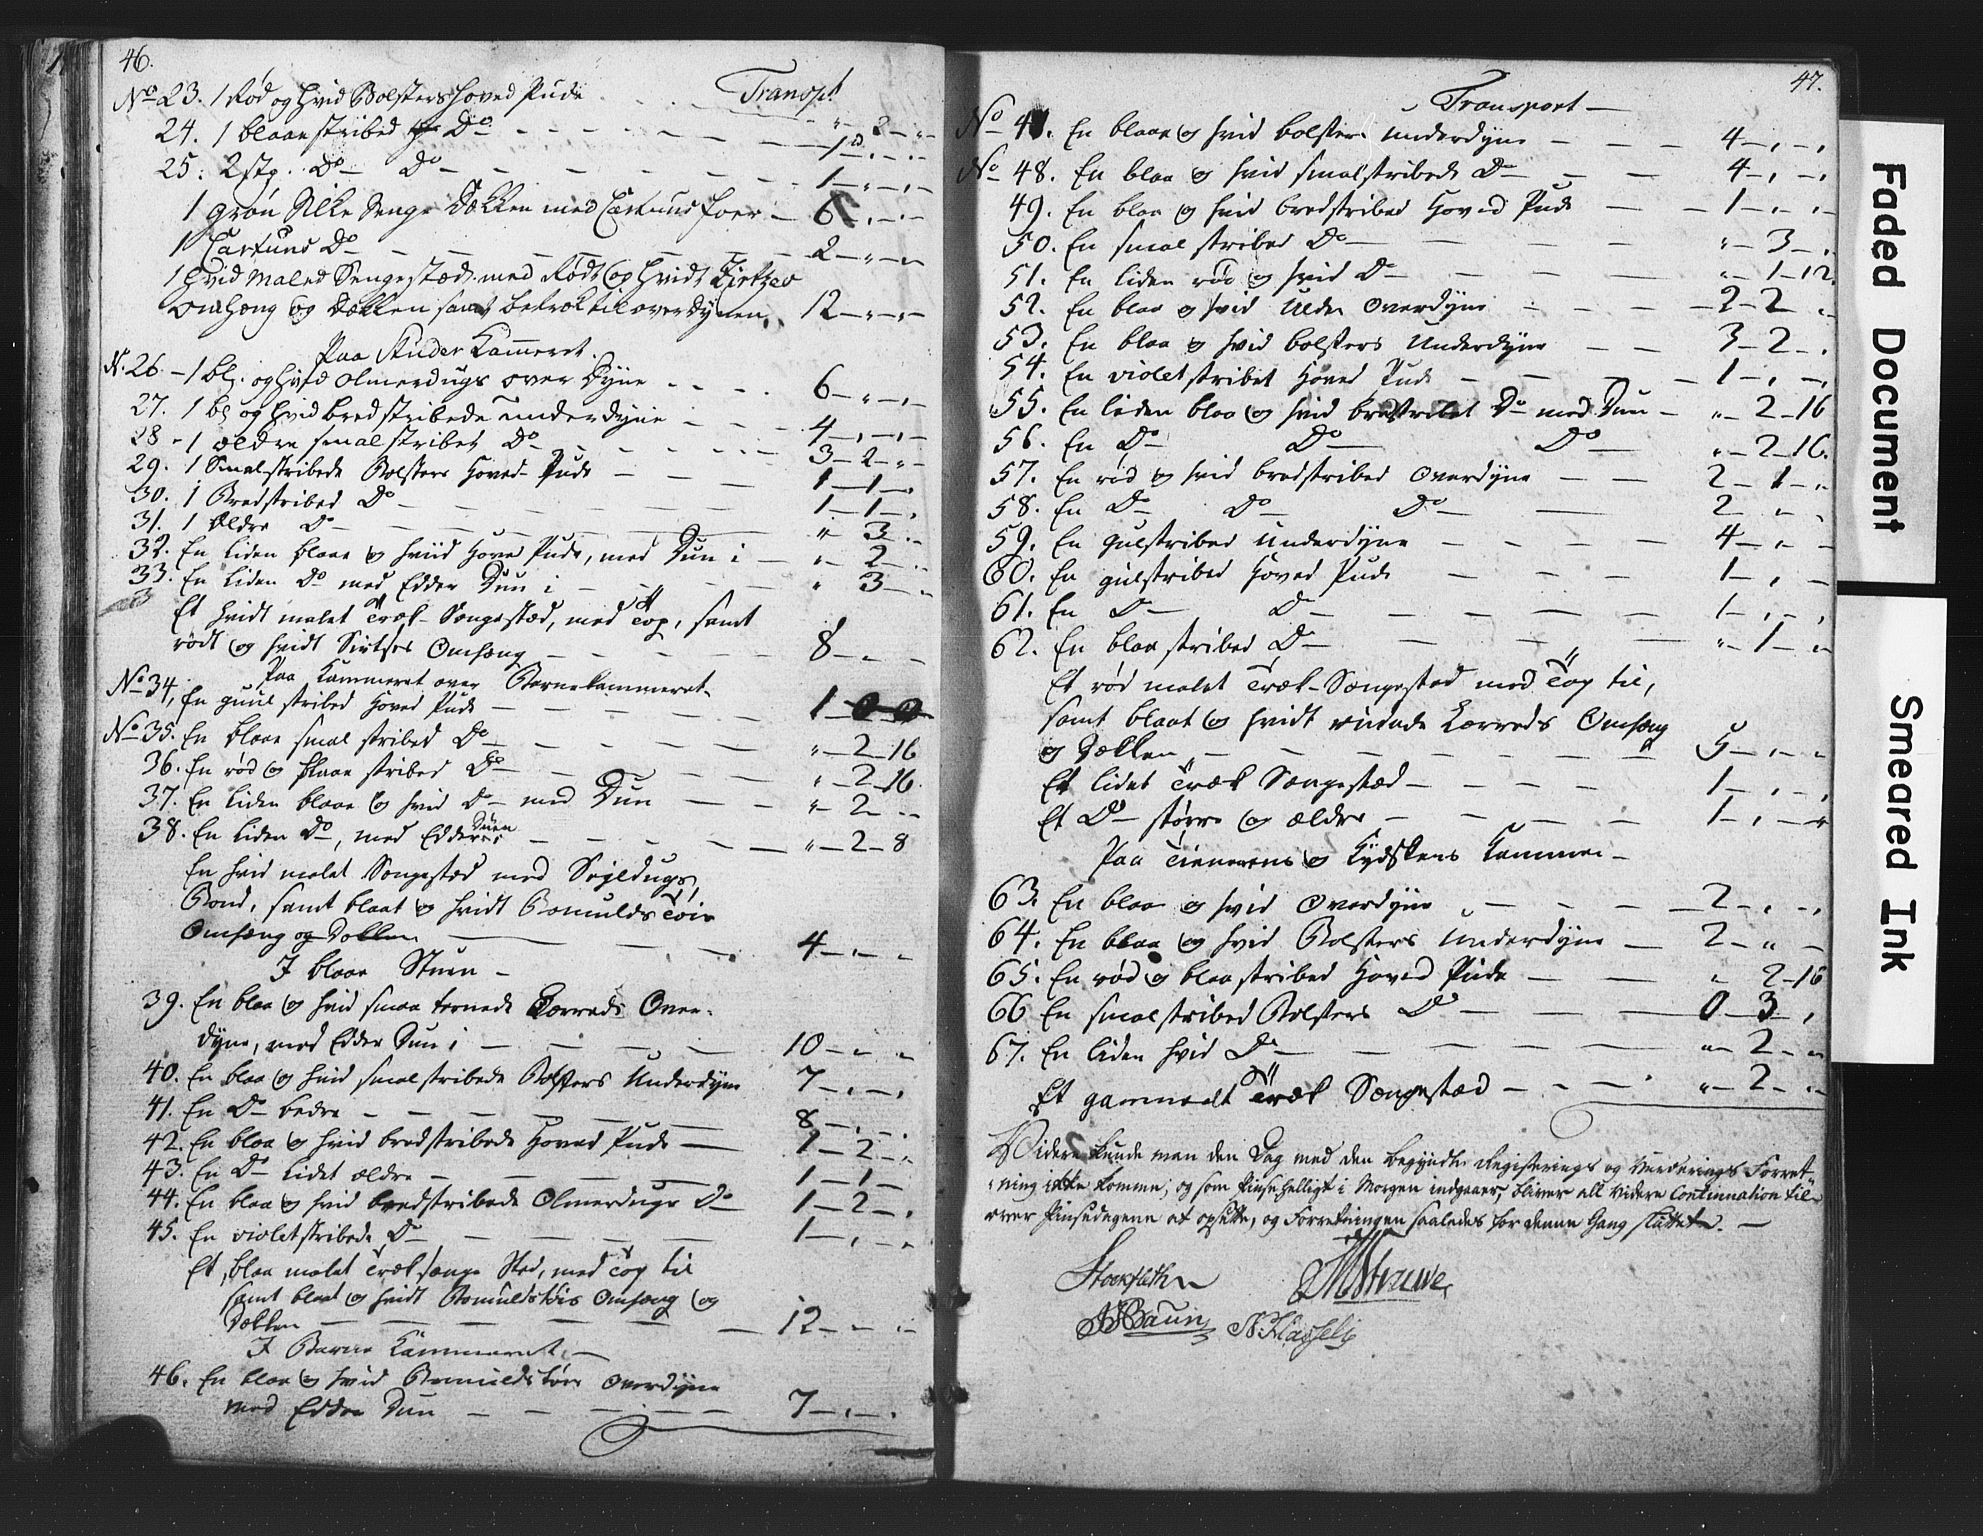 46.
Transpt
No 23. 1 Rød og hvid Bolsters hoved Pude - - - „ - 3 - „
24. 1 blaae stribed Do - - - 1 - „ - „
25. 2 stp. Do Do - - - 1 - „ - „
1 grøn Silke Senge Dækken med Cartuns foer - 6 - „ - „
1 Cartuns Do - - - 2 - „ - „
1 hvid Maled Sengestæd med Rødt og hvidt Zirtzes
Omhæng og Dækken samt betræk til overdynen. 12 - „ - „
Paa Studer Kammeret.
N. 26. - 1 bl. og hvid Olmerdugs over Dyne - - - 6 - „ - „
27. 1 bl og hvid bredstribede underdyne - - - 4 - „ - „
28 - 1 ældre smalstribet Do - - - 3 - 2 - „
29. 1 Smalstribede Bolsters Hoved-Pude - - - 1 - 1 - „
30. 1 Bredstribed Do - - - 1 - 1 - „
31. 1 Ældre Do - - - „ 3 - „
32. En liden blaae og hviid Hoved Pude, med Duun i - „ - 2 - „
33. En liden Do med Edder Duun i - - - „ 3 - „
Et hvidt malet Træk-Sængestæd, med Top, samt
rødt og hvidt Sirtses Omhæng - - - 8 - „ - „
Paa Kammeret over Børnekammeret.
No 34, En guul stribed Hoved Pude - - - 1
No 35. En blaae smal stribed Do - - - „ - 2 - 16
36. En rød og blaae stribed Do - - - „ - 2 - 16.
37. En liden blaae og hvid Do - med Duun - - „ - 2 - „
38. En liden Do, med Edder Duun - - - „ - 2 - 8
En hvid malet Sængestæd med Sejldugs
Bond, samt blaat og hvidt Bomulds Tøis
Omhæng og Dækken - - - 4 - „ - „
I blaae Stuen -
39. En blaa og hvid smaa ternede Lærreds Over-
dyne, med Edder Duun i - - - 10 - „ - „
40. En blaa og hvid smalstribede Bolsters Underdyne 7 - „ - „
41. En Do bedre - - - 8 - „ - „
42. En blaa og hvid bredstribede Hoved Pude - 1 - 2 - „
43. En Do lidet ældre - - - 1 - 1 - „
44. En blaa og hvid bredstribede Olmerdugs Do - 1 - 2 - „
45. En violetstribede Do - - - 1 - „ - „
Et blaa malet Træksænge Sted, med Top til
samt blaat og hvidt Bomuldstøis Omhæng og
Dækken - - - 12 - „ - „
I Børne Kammeret. -
46. En blaa og hvid Bomuldstøies Overdyne
med Edder Duun - - - 7 - „ - „
47.
Transport -
No 47. En blaae og hvid bolsters underdyne - - - 4 - „ - „
No 48. En blaa og hvid smalstribede Do - - 4 - „ - „
49. En blaa og hvid bredstribed Hoved Pude - - 1 - „ - „
50. En smal stribed Do - - - „ - 3 - „
51. En liden rød og hvid Do - - - „ - 1 - 12
52. En blaa og hvid Ulden Overdyne - - - 2 - 2 - „
53. En blaa og hvid bolsters Underdyne - - 3 - 2 - „
54. En violet stribet Hoved Pude - - - 1 - „ - „
55. En liden blaa og hvid bredstribet Do med Duun - „ - 2 - 16
56. En Do Do Do - „ - 2 - 16.
57. En rød og hvid bredstribed Overdyne - - 2 - 1 - „
58. En Do Do Do - 2 - „ - „
59. En gulstribed Underdyne - - - 4 - „ - „
60. En gulstribed Hoved Pude - - - 1 - „ - „
61. En Do Do - - - 1 - „ - „
62. En blaa stribed Do - - - „ - 1 - „
Et rød malet Træk-Sængestæd med Top til,
samt blaat og hvidt rudede Lærreds Omhæng
og Dækken - - - 5 - „ - „
Et lidet Træk Sængestæd - - - 1 - „ - „
Et Do større og ældre - - - 1 - „ - „
Paa Tienerens og Kydskens Kammer -
63. En blaa og hvid Overdyne - - - 2 - „ - „
64. En blaa og hvid Bolsters Underdyne - 2 - „ - „
65. En rød og blaastribed Hoved Pude - - „ 2 - 16
66 En smalstribed Bolsters Do - - 0 - 3 - „
67. En liden hvid Do - - - „ - 2 - „
Et gammelt Træk Sængestæd - - - „ - 2 - „
Videre kunde man den Dag med den begyndte Registerings og Vurderings Forret-
ning ikke komme; og som Pinsehelligt i Morgen indgaaer, bliver all videre Continuation til
over Pinsedagene at opsætte, og Forretningen saaledes for denne Gang sluttet. -
Stockfleth
MStruwe
JBaun
N. Klassesly
Faded Document
Smeared Ink